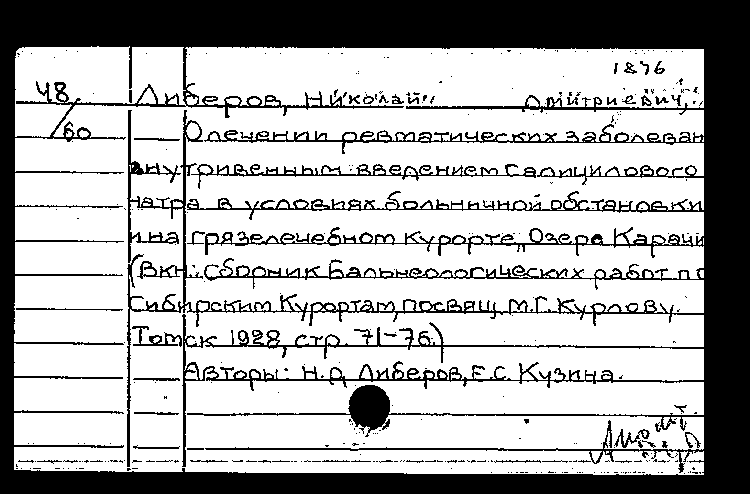 1876
48/60 Либеров, Николай Дмитриевич,
О лечении ревматических заболеван
внутривенным введением салицилового
натра в условиях больничной обстановки
и на грязелечебном курорте „Озера Карачи
(В кн.: Сборник Бальнеологических работ по
Сибирским Курортам, посвящ. М.Г. Курлову.
Томск 1928, стр. 71-76.)
Авторы: Н.Д. Либеров, Е.С. Кузина.